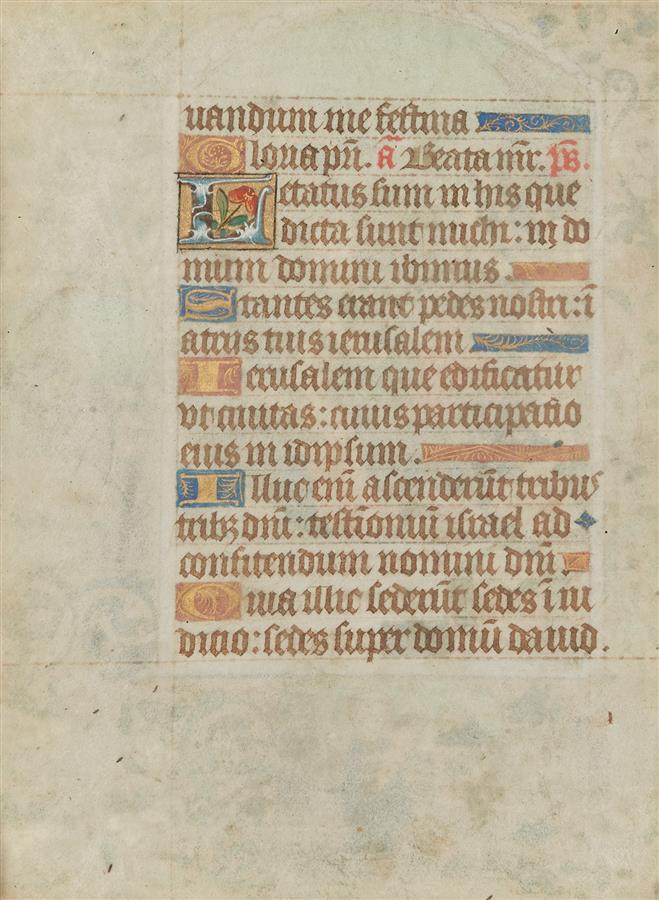 uandum me festina
Gloria pr̄i. a᷑ Beata mr̄. ps̄.
Letatus sum in his que
dicta sunt michi: in do
mum domini ibimus.
Stantes erant pedes nostri: ī
atriis tuis ierusalem
Ierusalem que edificatur
vt ciuitas: cuius participatio
eius in idipsum.
Illuc em̄ ascenderūt tribus
tribꝫ dn̄i: testimoniū israel ad
confitendum nomini dn̄i.
Quia illic sederūt sedes ī iu
dicio: sedes super domū dauid.